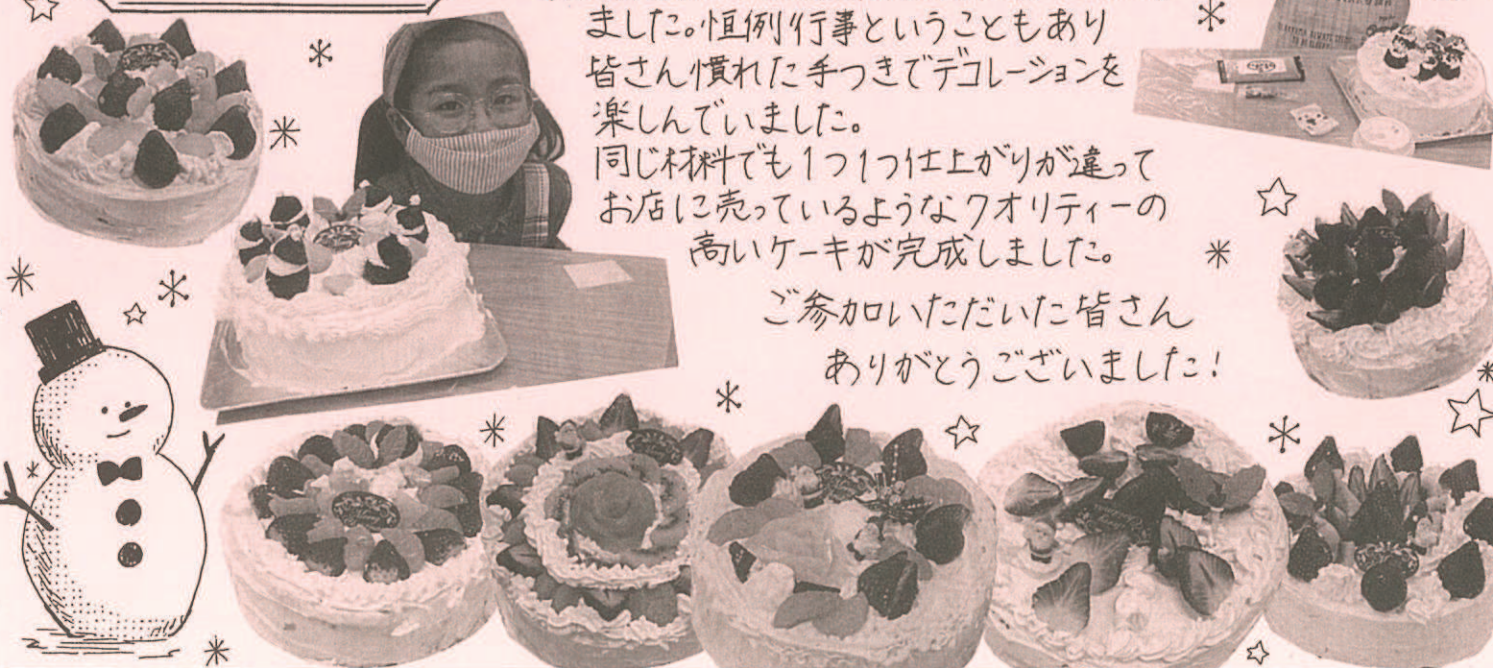 ました。恒例行事ということもあり
皆さん慣れた手つきでデコレーションを
楽しんでいました。
同じ材料でも1つ1つ仕上がりが違って
お店に売っているようなクオリティーの
高いケーキが完成しました。
ご参加いただいた皆さん
ありがとうございました!